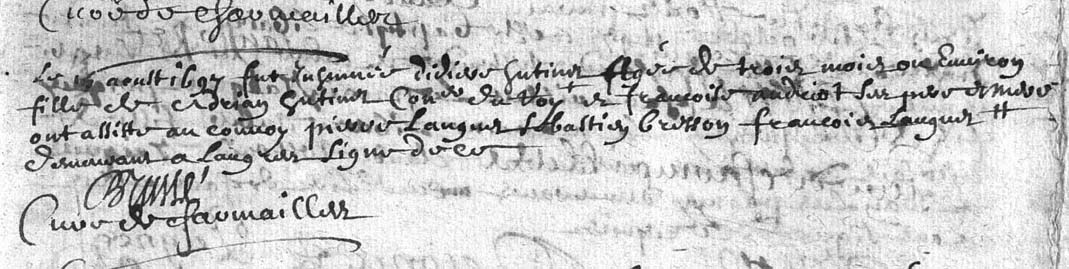 Curé de charmailles
Le aoust 1697 fut Inhumée didiere hutinet Agée de trois mois ou Environ
fille de Adrian hutinet Con du Roy et francoise andriot ses pere et mere
ont assiste au convoy pierre Languet sebastien bresson francois Languet
demeurant a Langres signe de ce
Curé de charmailles